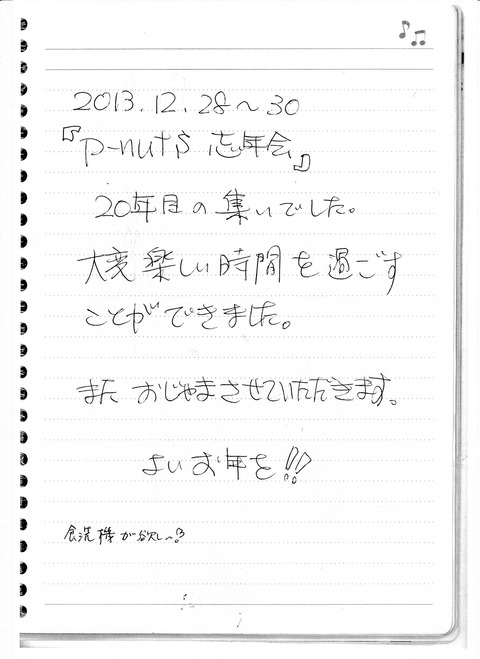 2013.12.28～30
『p-nuts 忘年会』
20年目の集いでした。
大変楽しい時間を過ごす
ことができました。
また おじゃまさせていただきます。
よいお年を!!
食洗機が欲し～!?